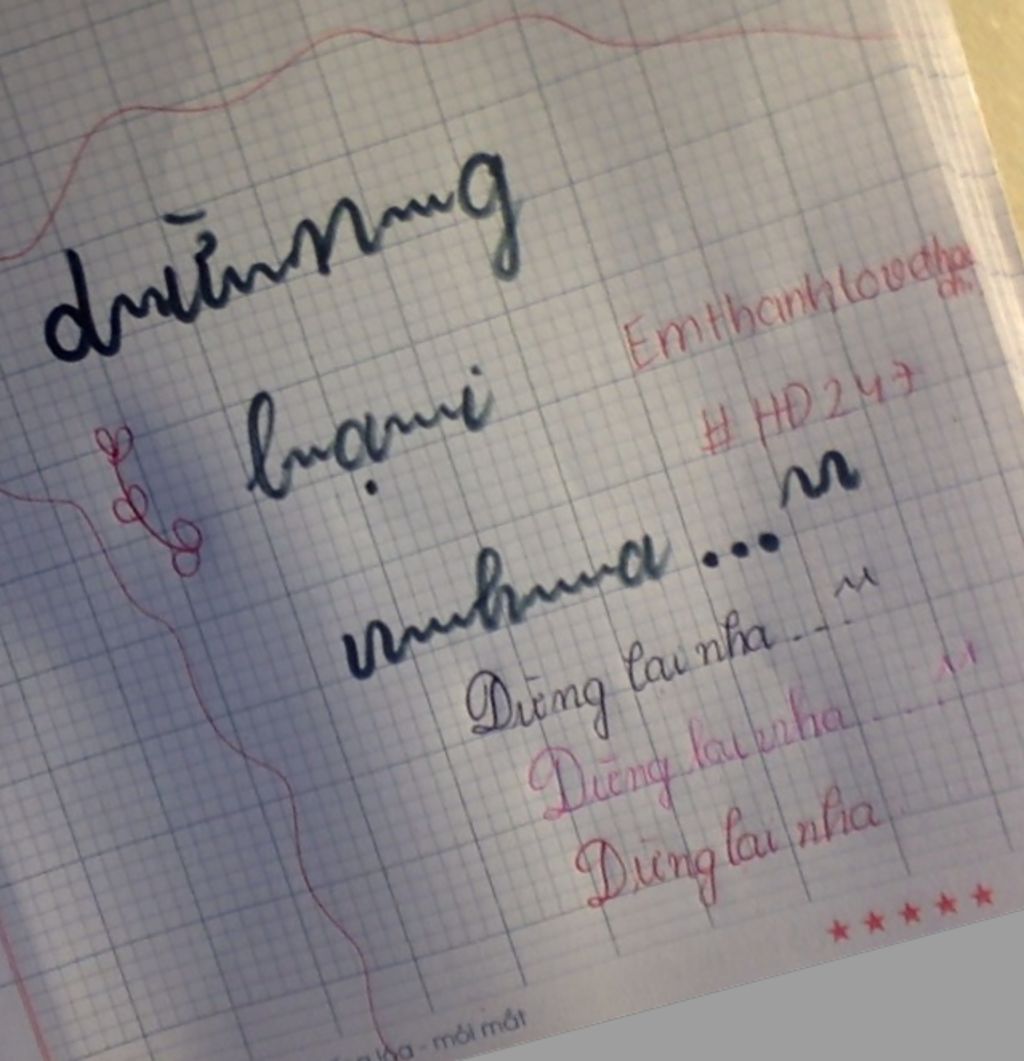 dừng
Emthanhlovecha
chi
lại
# HD247
nha... ~
Dừng lại nha... ~
Dừng lại nha... ~
Dừng lại nha
lóa - mỏi mắt